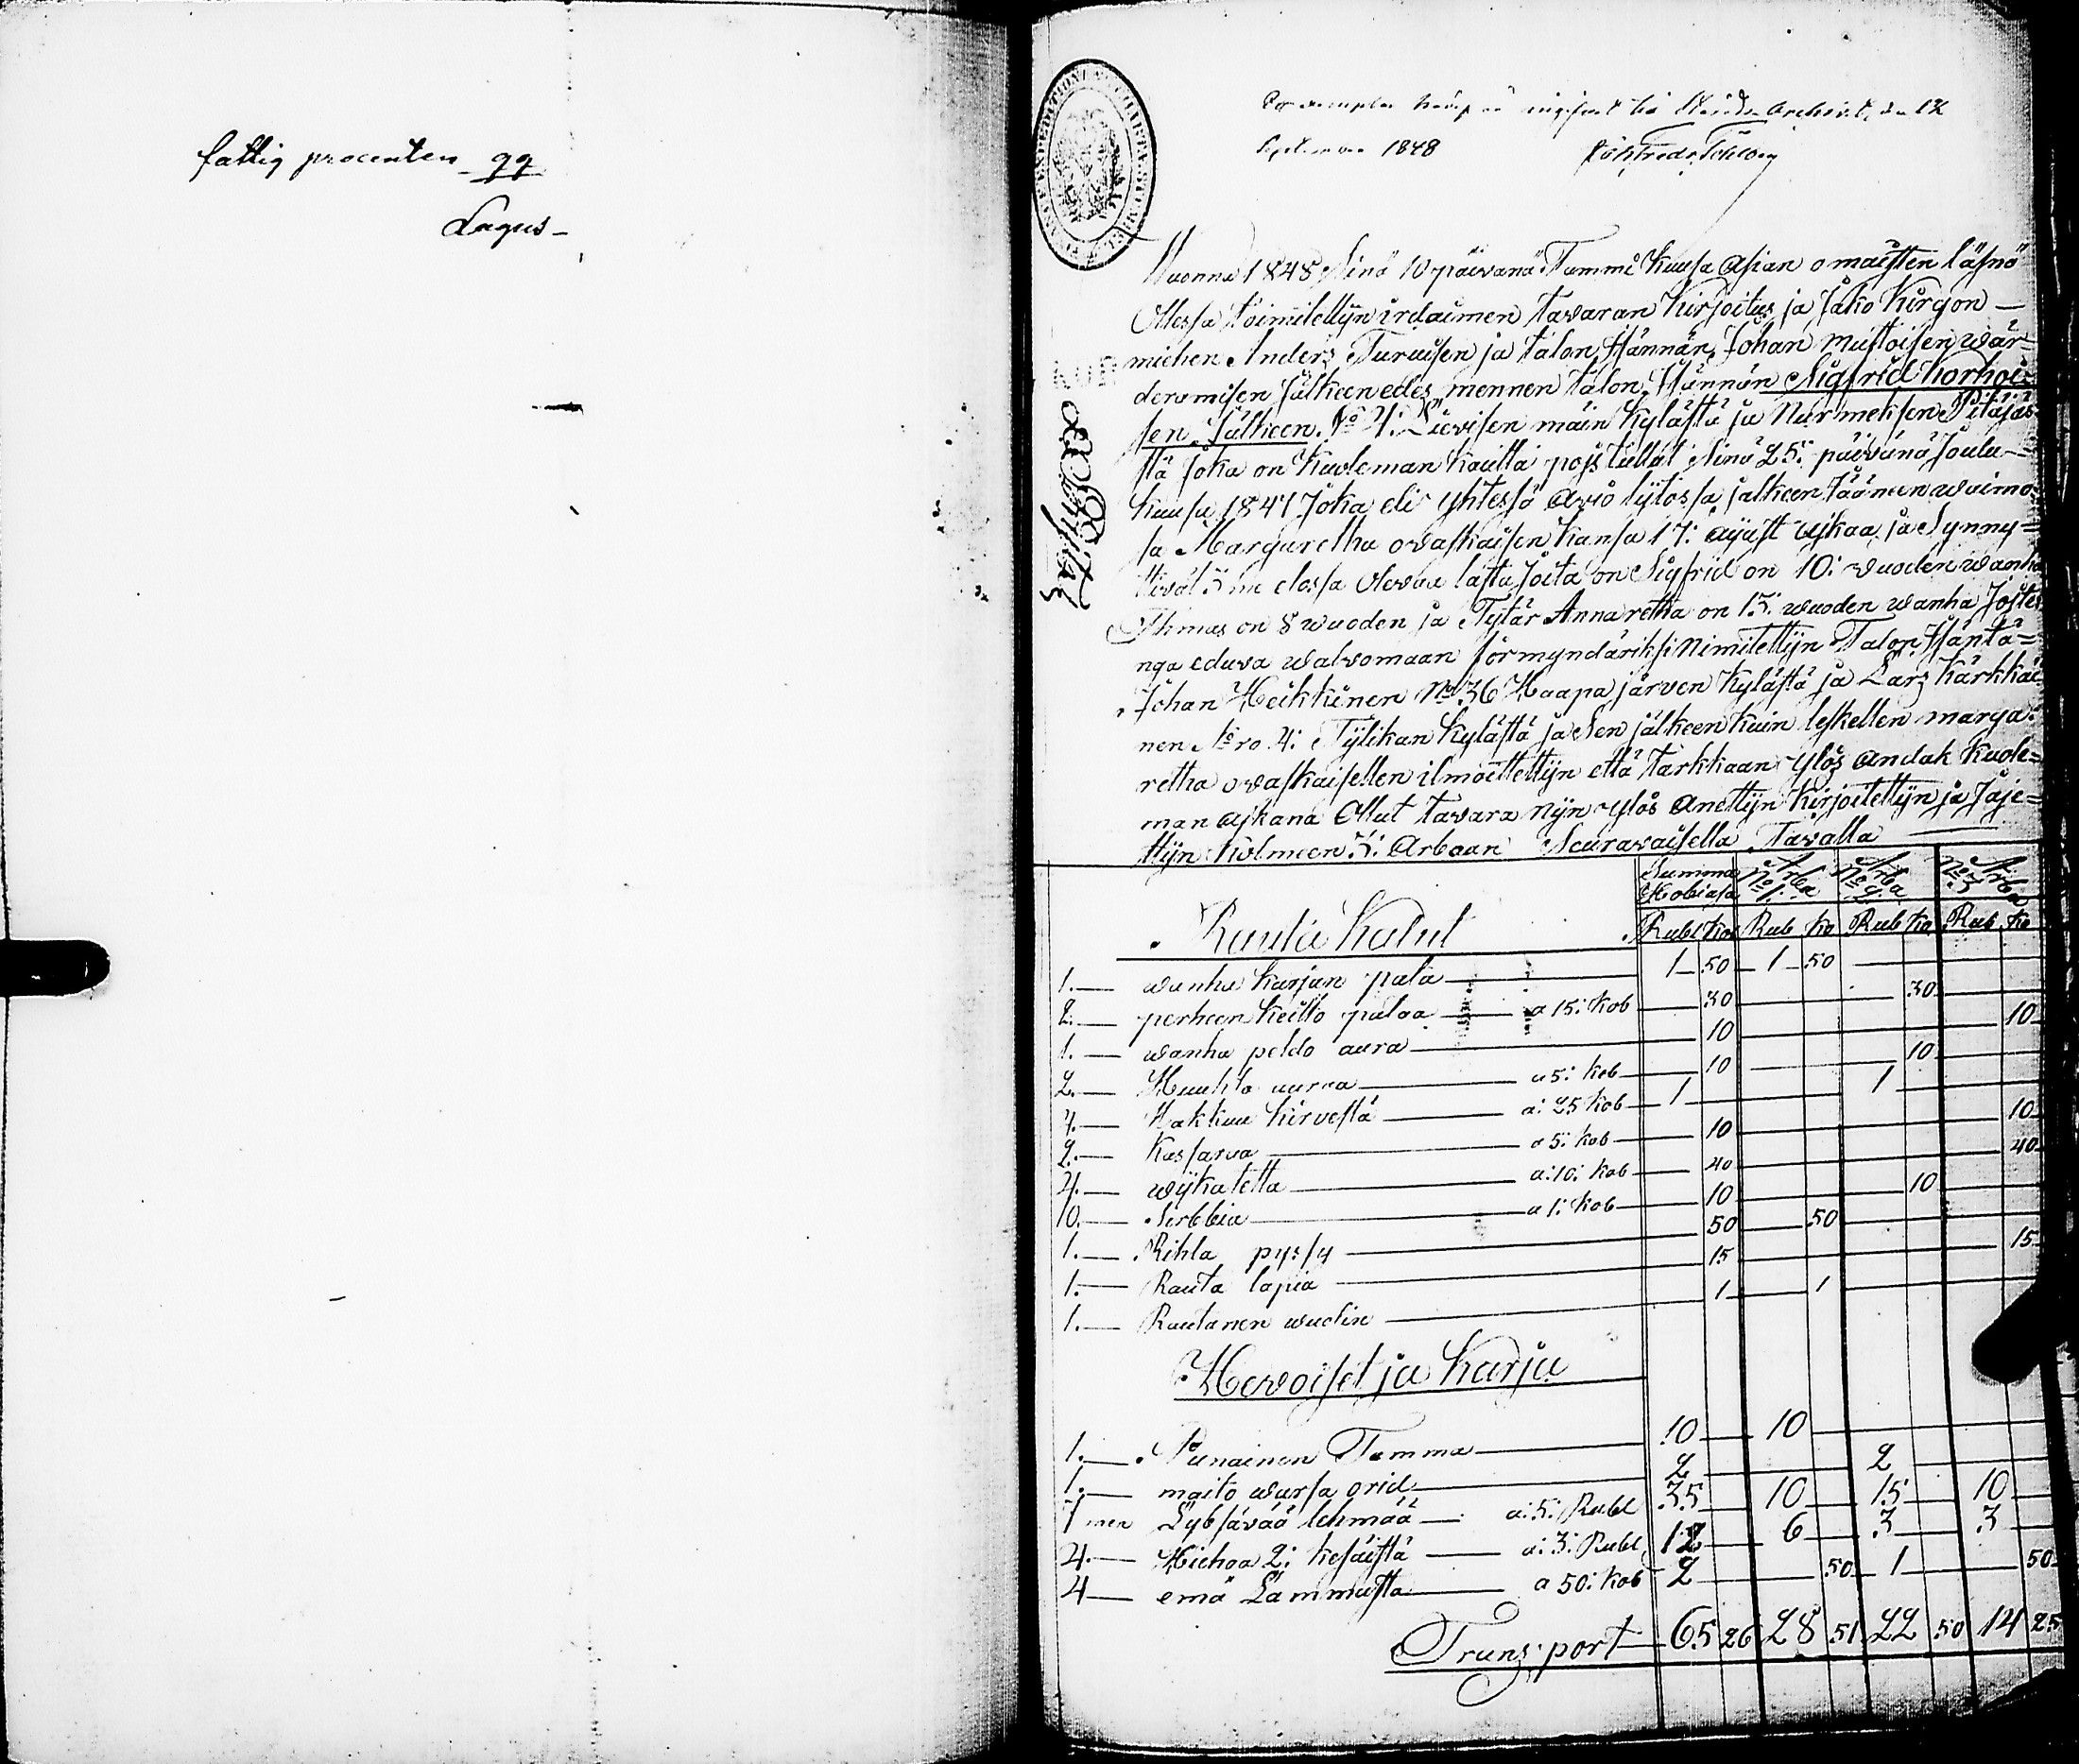 fattig procenten 99
Lagus
September 1848
Wuonna 1848 Sinä 10 päivänä Tammi Kuusa Asian omaisten läsnä
Ollessa toimitettijn irdaimen tavaran Kirjoitus ja Jako Kirgon
miehen Anders Turuisen ja talon Hännän Johan Mustoisen wär=
deramisen Jälkeen edes mennen talon Hännän Sigfrid Korhoi=
sen Jälkeen. No 4: Lievisen mäin Kylästä ja Nurmeksen Pitäjäs=
stä Joka on Kuoleman Kautta pojs tullut Sinä 25: päivänä Joulu=
kuusa 1847 Joka eli yhtessä Avio lijtossa jälkeen Jääneen waimo=
sa Margaretha ovaskaisen Kansa 17: ajast ajkaa ja Synny=
ttivät 3 me elossa Olevaa lasta Joita on Sigfrid on 10: wuoden wanha
Thomas on 8 wuoden ja Tytär Anna retha on 13: wuoden wanha Joiten
nga eduva walvomaan förmyndäriksi Nimitettijn Talon Häntä=
Johan Heikkinen No 36 Haapajärven Kylästä ja Lars Kärkkäi
nen No ro 4: Tijlikan Kylästä ja Sen jälkeen kuin leskellen marga:
retha ovaskaisellen ilmoitettijn että tarkkaan Ylös Andak Kuole=
man ajkana Ollut tavara Nijn Ylös Anettijn Kirjoitettijn ja Jaje=
ttijn Kolmeen 3: Arbaan Seuravaisella Tavalla
Summa Hobiasa Arba No 1: Arba No 2: Arba No 3
Rauta Kalut Rubl Kob Rub Ko Rub Ko Rub Ko
1. wanha karjan pata 1 50 1 50
2. perheen keitto pataa a 15: Kob 30 30
1. wanha peldo aura 10 10
2. Huuhta auraa a 5: Kob 10 10
4. Hakkuu Kirvestä a: 25 Kob 1 1
2. Kassaraa a 5: Kob 10 10
4. wijkatetta a: 10: Kob 40 40
10. Sirbbiä a 1: Kob 10 10
1. Rihla pyssy 50 50
1. Rauta lapia 15 15
1. Rautanen wuolin 1 1
Hevoiset ja Karja
1. Punainen Tamma 10 10
1. maito warsa orid 2 2
7 men Lybsävää lehmää a: 5: Rubl 35 10 15 10
4. Hiehoa 2: kesäistä a: 3: Rubl 12 6 3 3
4 emä Lammasta a 50: Kob 2 50 1 50
Transport 65 26 28 51 22 50 14 25